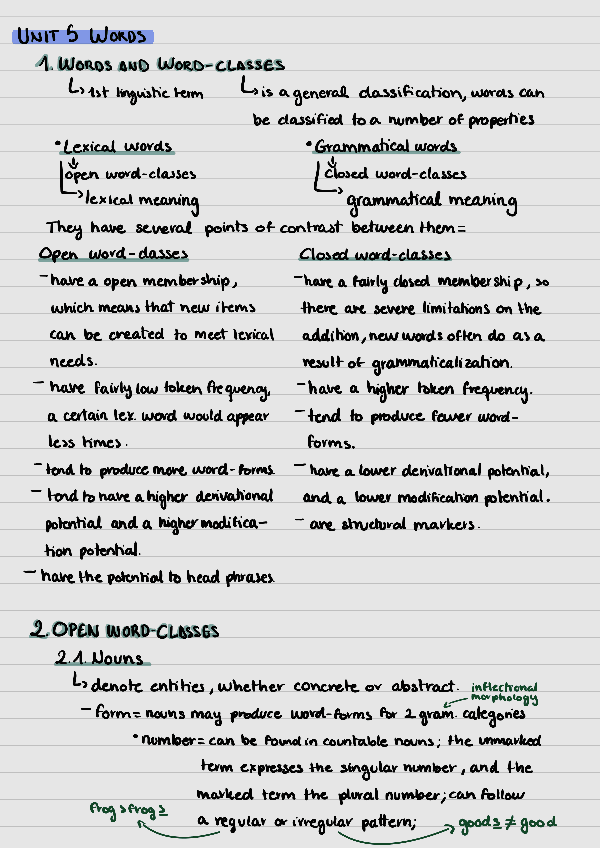 UNIT 5 WORDS
1. WORDS AND WORD-CLASSES
↳ 1st linguistic term
↳ is a general classification, words can
be classified to a number of properties
• Lexical words
open word-classes
lexical meaning
• Grammatical words
closed word-classes
grammatical meaning
They have several points of contrast between them=
Open word-classes
- have a open membership,
which means that new items
can be created to meet lexical
needs.
- have fairly low token frequency,
a certain lex. word would appear
less times.
- tend to produce more word-forms.
- tend to have a higher derivational
potential and a higher modifica-
tion potential.
- have the potential to head phrases.
Closed word-classes
- have a fairly closed membership, so
there are severe limitations on the
addition, new words often do as a
result of grammaticalization.
- have a higher token frequency.
- tend to produce fewer word-
forms.
- have a lower derivational potential,
and a lower modification potential.
- are structural markers.
2. OPEN WORD-CLASSES
2.1. Nouns
↳ denote entities, whether concrete or abstract.
inflectional
morphology
- form= nouns may produce word-forms for 2 gram. categories
• number= can be found in countable nouns; the unmarked
term expresses the singular number, and the
marked term the plural number; can follow
a regular or irregular pattern;
frog > frogs
goods ≠ good